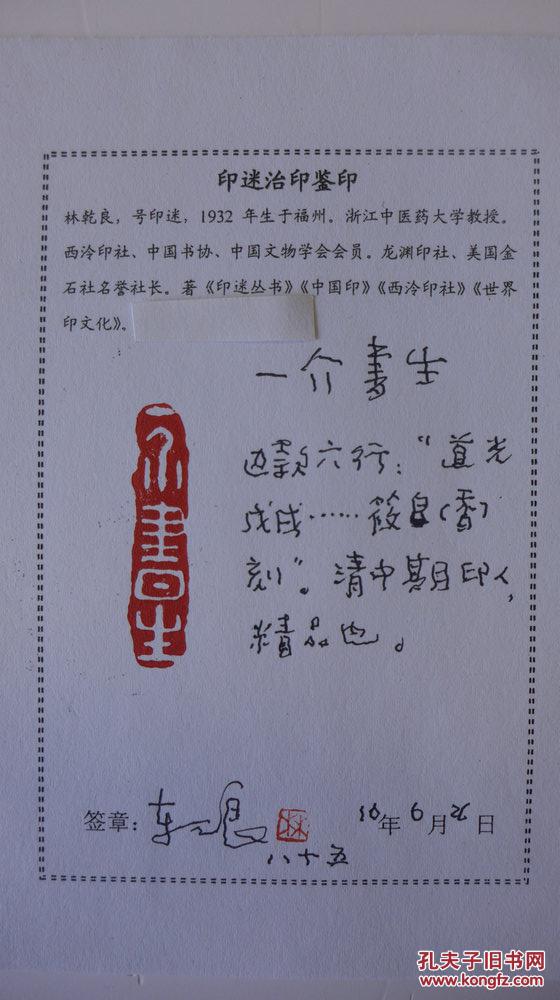 印迷治印鉴印
林乾良，号印迷，1932 年生于福州。浙江中医药大学教授。
西泠印社、中国书协、中国文物学会会员。龙渊印社、美国金
石社名誉社长。著《印迷丛书》《中国印》《西泠印社》《世界
印文化》。
一介書生
一介書生
边款六行：“道光
戊戌……筱自（香）
刻”。清中期印人，
精品也。
签章：
八十五
16年6月26日
孔夫子旧书网
www.kongfz.com